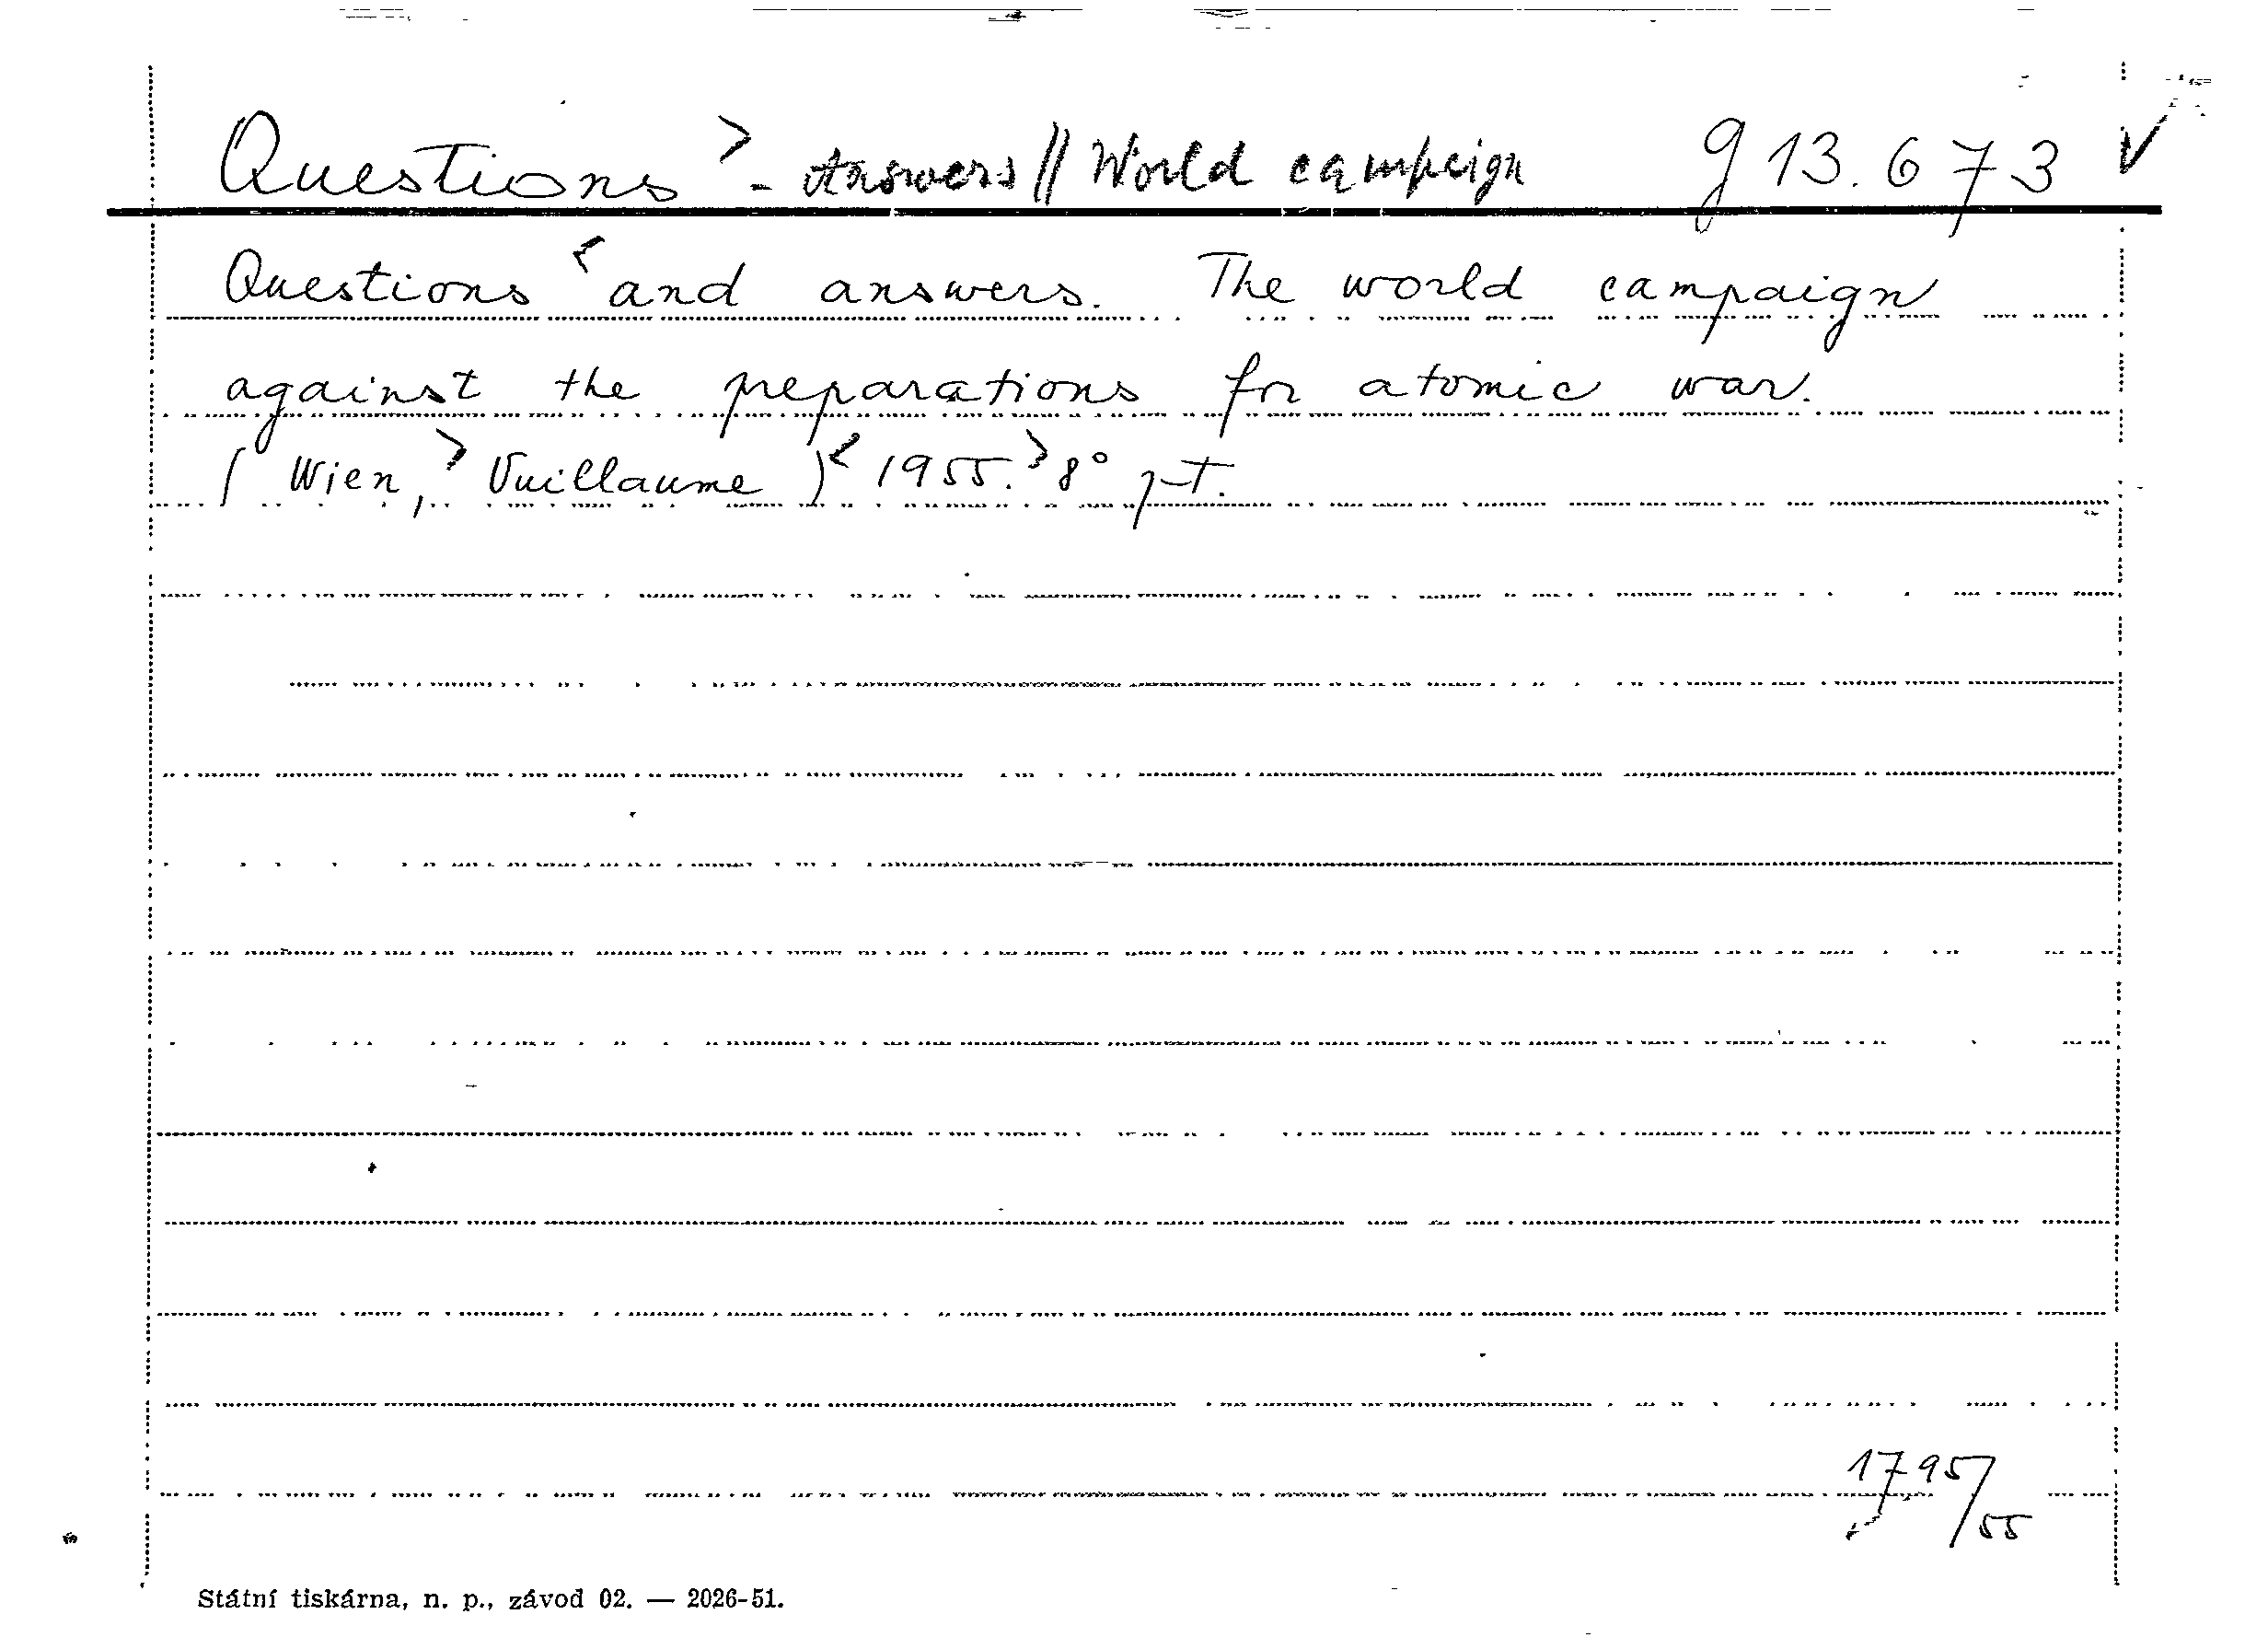 Questions > - Answers // World campaign g 13.673 V
Questions < and answers. The world campaign
against the preparations for atomic war.
( Wien, > Vuillaume ) < 1955. > 8°
1795/55
Státní tiskárna, n. p., závod 02. — 2026-51.